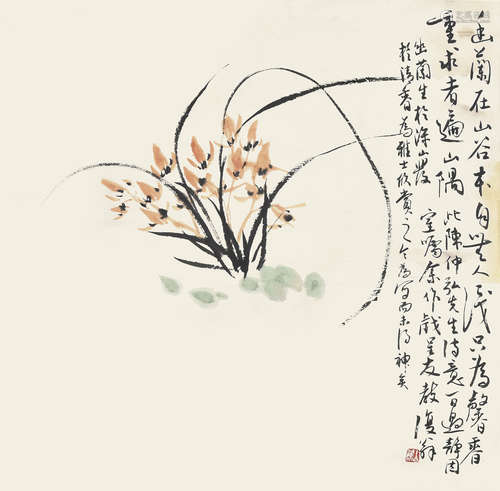 幽蘭在山谷本自無人識只為馨香
重求者遍山隅 此陳仲弘先生詩意
室囑余作戲呈友教 復翁
幽蘭生於深山發
於清香為雅士欣賞之今為寫而未得神矣